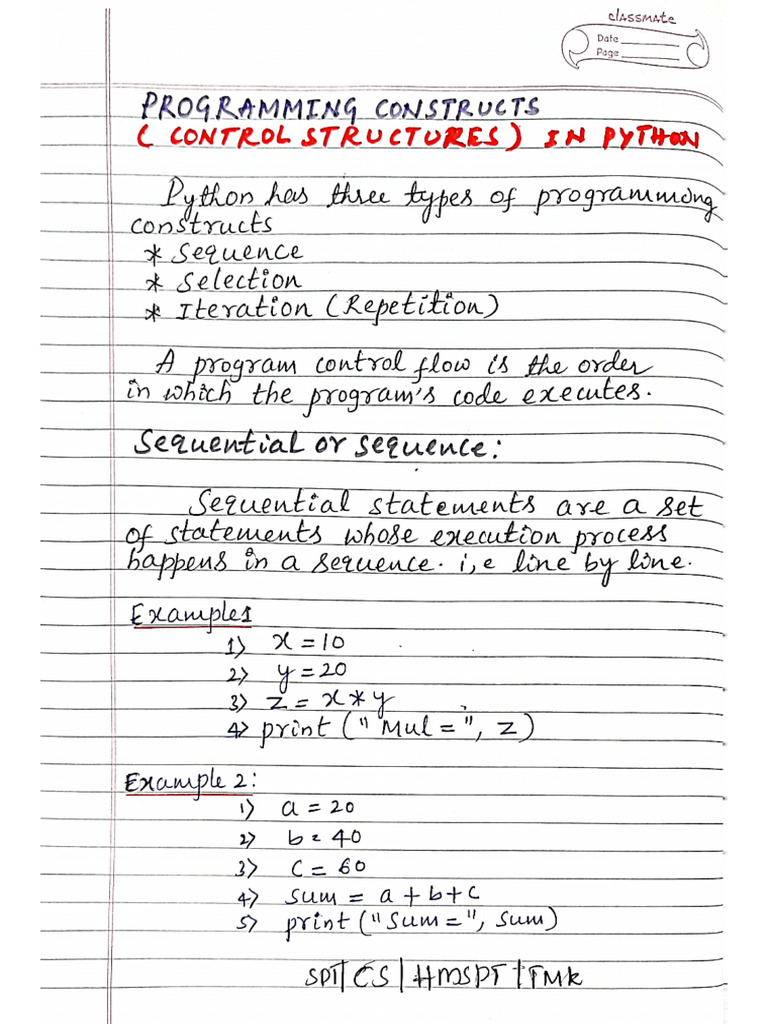 classmate
Date
Page
PROGRAMMING CONSTRUCTS
(CONTROL STRUCTURES) IN PYTHON
Python has three types of programming
constructs
* Sequence
* Selection
* Iteration (Repetition)
A program control flow is the order
in which the program's code executes.
Sequential or sequence:
Sequential statements are a set
of statements whose execution process
happens in a sequence. i,e line by line.
Example1
1) x = 10
2) y = 20
3) z = x * y
4) print ("Mul=", z)
Example 2:
1) a = 20
2) b = 40
3) c = 60
4) sum = a + b + c
5) print ("Sum=", sum)
SPT|CS|HMSPT|TMK